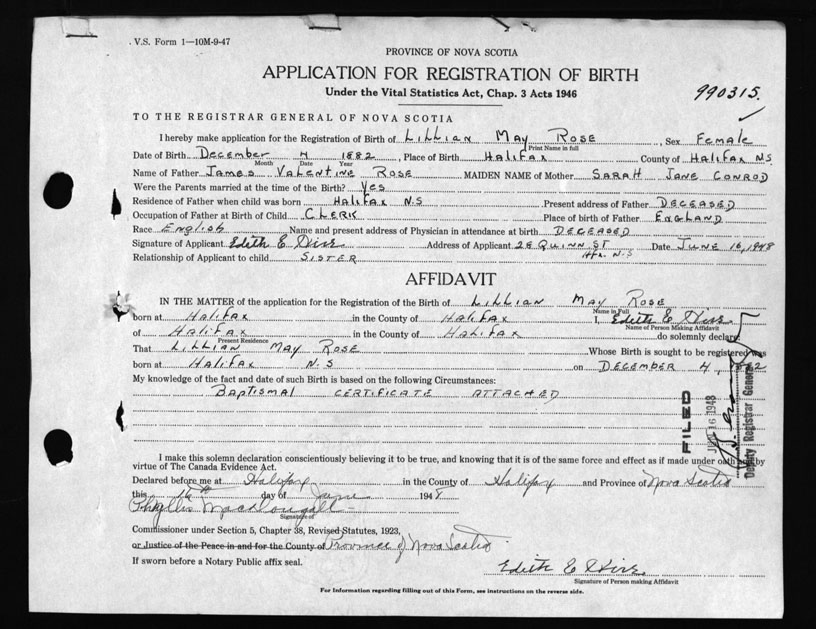 V.S. Form 1—10M-9-47
PROVINCE OF NOVA SCOTIA
APPLICATION FOR REGISTRATION OF BIRTH
Under the Vital Statistics Act, Chap. 3 Acts 1946
990315.
TO THE REGISTRAR GENERAL OF NOVA SCOTIA
I hereby make application for the Registration of Birth of LILLIAN MAY ROSE, Sex Female
Print Name in full
Date of Birth December 4 1882, Place of Birth HALIFAX County of HALIFAX N.S
Month Date Year
Name of Father JAMES VALENTINE ROSE MAIDEN NAME of Mother SARAH JANE CONROD
Were the Parents married at the time of the Birth? Yes
Residence of Father when child was born HALIFAX N.S Present address of Father DECEASED
Occupation of Father at Birth of Child CLERK Place of birth of Father ENGLAND
Race ENGLISH Name and present address of Physician in attendance at birth DECEASED
Signature of Applicant Edith E Address of Applicant 28 QUINN ST Date JUNE 16, 1948
Hfx. N.S
Relationship of Applicant to child SISTER
AFFIDAVIT
IN THE MATTER of the application for the Registration of the Birth of LILLIAN MAY ROSE
Name in Full
born at HALIFAX in the County of HALIFAX I, Edith E
Name of Person Making Affidavit
of HALIFAX in the County of HALIFAX do solemnly declare:
Present Residence
That LILLIAN MAY ROSE Whose Birth is sought to be registered was
born at HALIFAX N.S on DECEMBER 4, 1882
My knowledge of the fact and date of such Birth is based on the following Circumstances:
BAPTISMAL CERTIFICATE ATTACHED
FILED
JUN 16 1948
Deputy Registrar General
I make this solemn declaration conscientiously believing it to be true, and knowing that it is of the same force and effect as if made under oath and by
virtue of The Canada Evidence Act.
Declared before me at Halifax in the County of Halifax and Province of Nova Scotia
this 16th day of June 1948
Phyllis MacDougall
Signature of
Commissioner under Section 5, Chapter 38, Revised Statutes, 1923,
or Justice of the Peace in and for the County of Province of Nova Scotia
If sworn before a Notary Public affix seal.
Edith E
Signature of Person making Affidavit
For Information regarding filling out of this Form, see instructions on the reverse side.